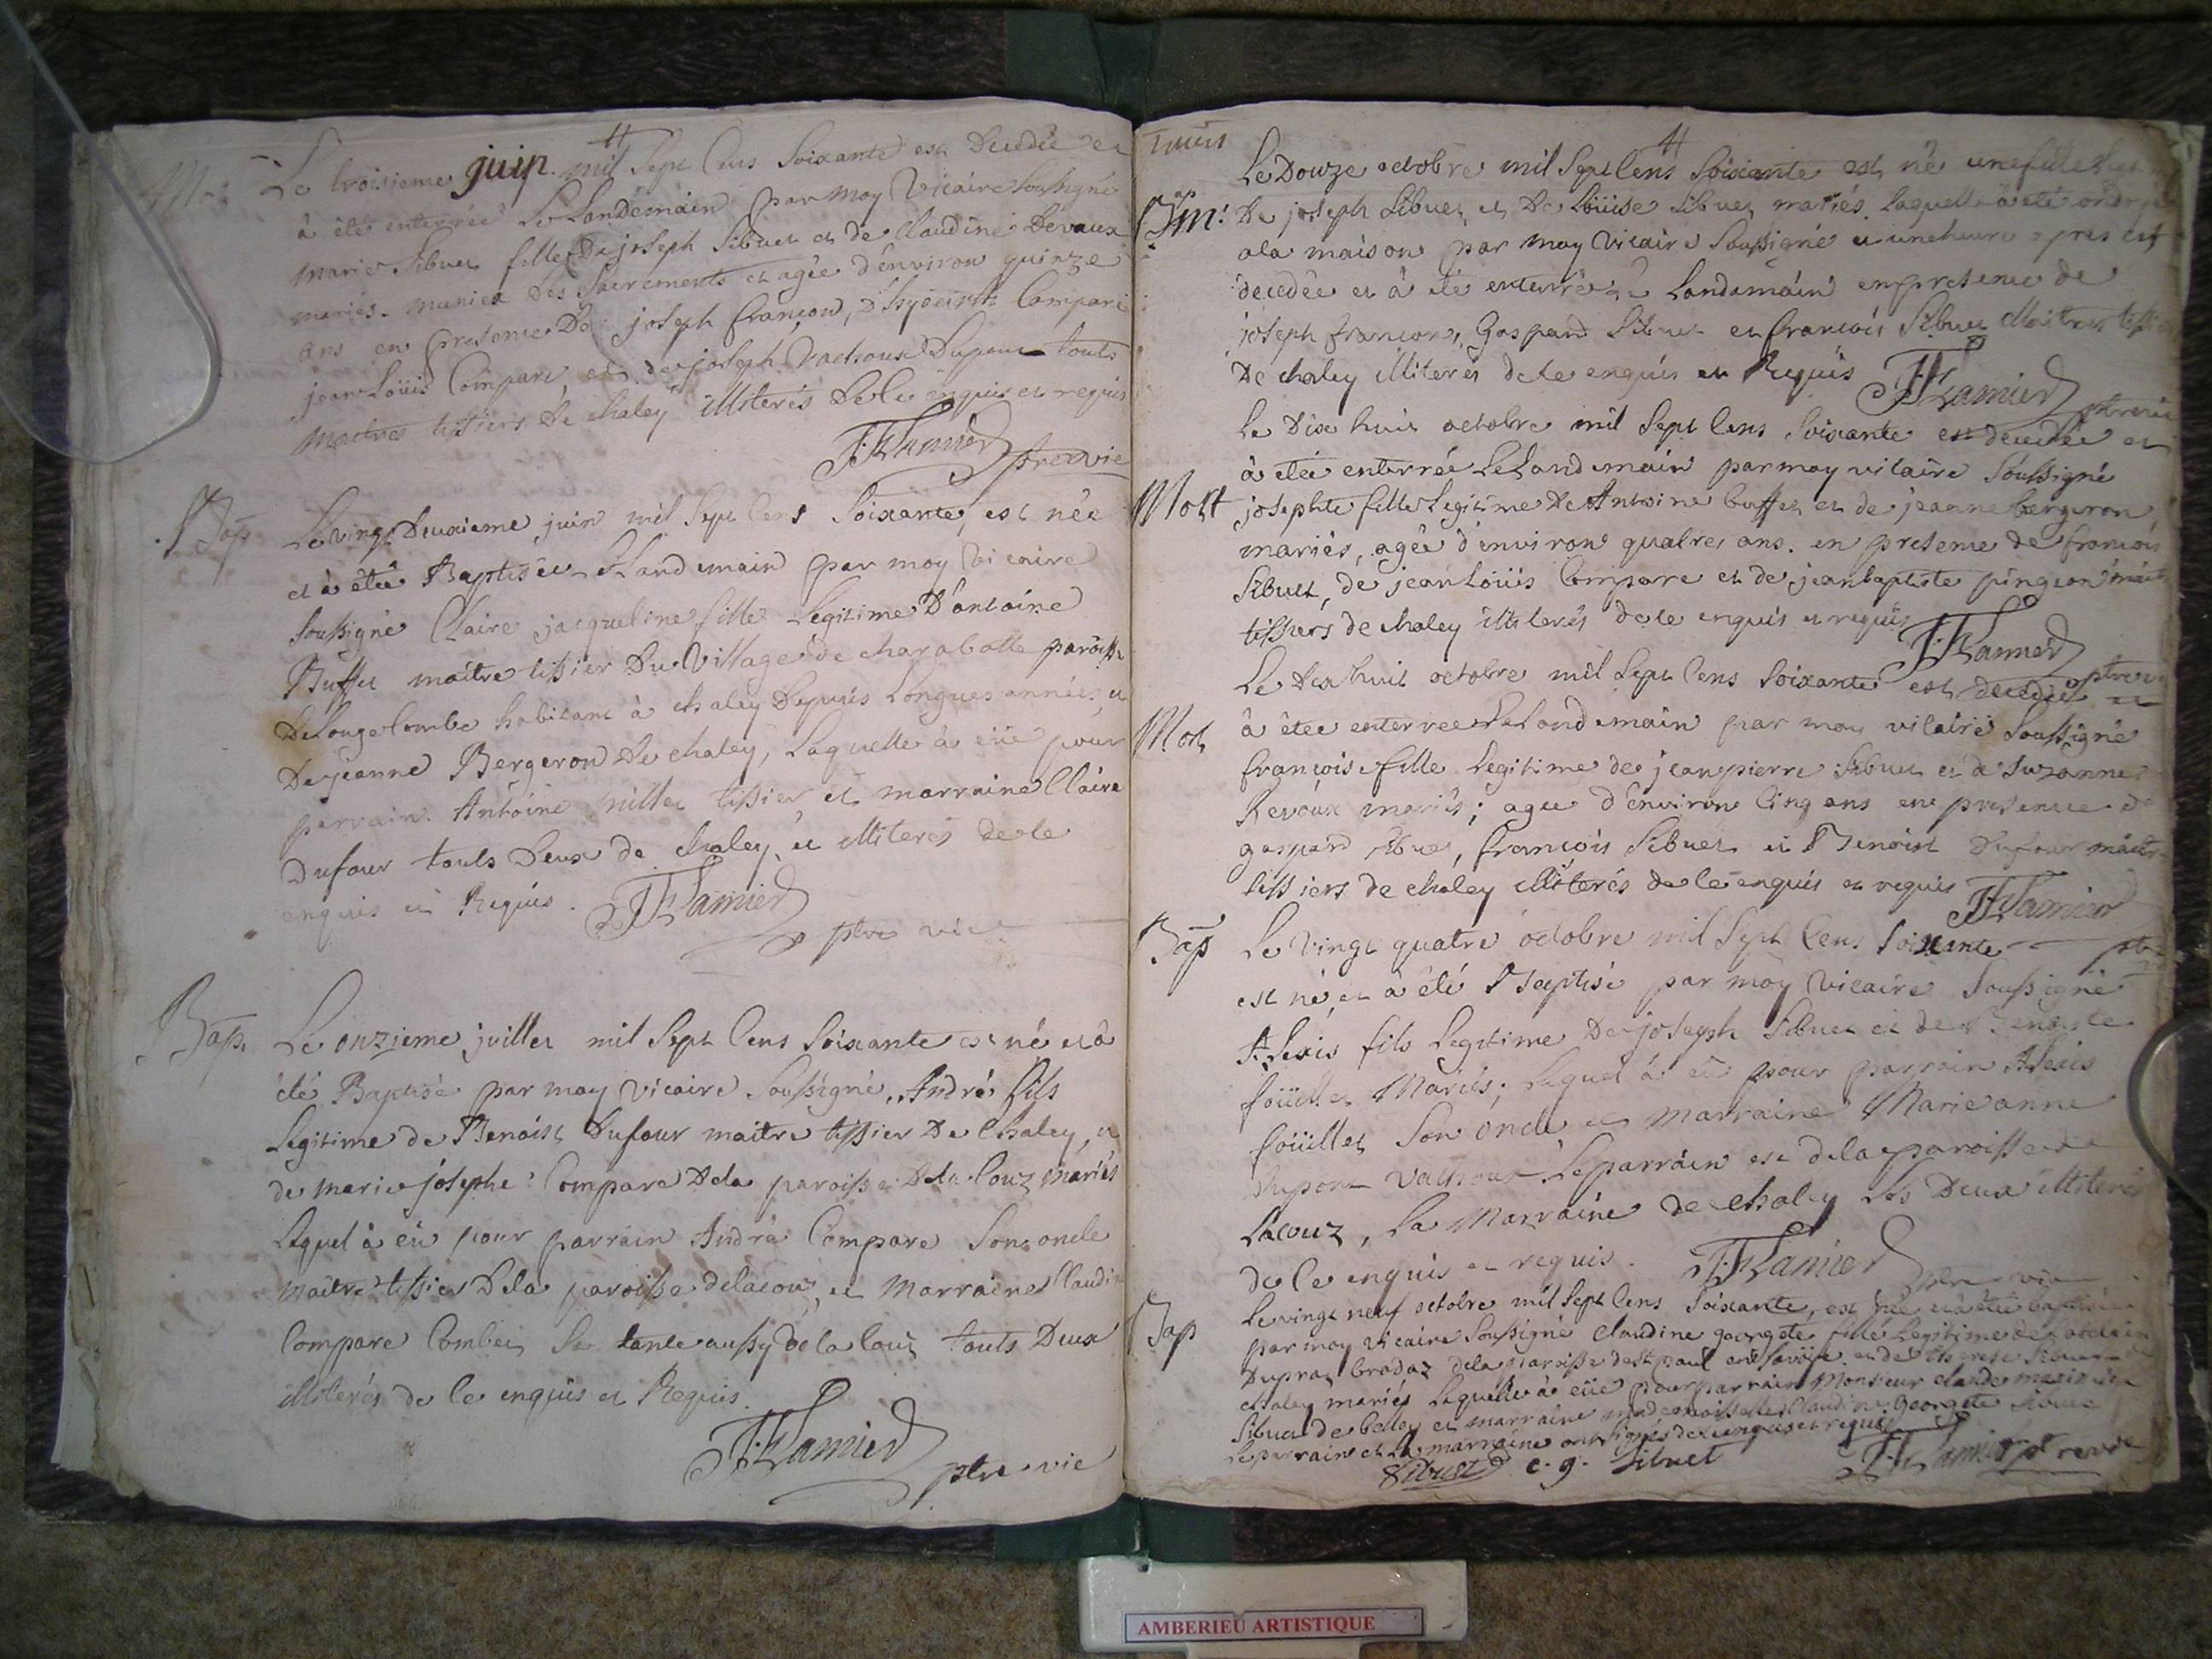 Le troisieme juin mil Sept Cens Soixante est Decedée et
à été enterrée Le Landemain par moy Vicaire Soussigné
marie Sibuet fille De joseph Sibuet et de Claudine Devaux
mariés. munies des Sacrements et agée d'environ quinze
ans en presence De joseph françon, d'hyacinte Compare
jean Loüis Compare, et de joseph Vachoux Dupont touts
maitres tissiers De chaley illiterés de Ce enquis et requis
J:F Lamier ptre vic
Bap Le vingt Deuxieme juin mil Sept Cens Soixante, est née
et à étée Baptisée Le Landemain par moy Vicaire
Soussigné Claire jacqueline fille Legitime D'antoine
Buffet maître tissier Du Village de charabotte paroisse
De Longecombe habitant à chaley Depuis Longues années, et
De jeanne Bergeron de chaley, Laquelle à eüe pour
parrain Antoine millet tissier et marraine Claire
Dufour touts Deux de chaley, et illiterés de Ce
enquis et Requis. J:F Lamier
ptre vic
Bap. Le onzieme juillet mil Sept Cens Soixante est né et à
été Baptisé par moy Vicaire Soussigné, André fils
Legitime de Benoist Dufour maitre tissier De Chaley, et
de marie josephe Compare De la paroisse De la Couz mariés
Lequel à eü pour parrain André Compare Son oncle
maître tissier De la paroisse de lacou, et Marraine Claudine
Compare Combet Sa tante aussy de la Couz touts Deux
illiterés de Ce enquis et Requis.
J:F Lamier
ptre vic
Le Douze octobre mil Sept Cens Soixante est né une fille
De joseph Sibuet et De Loüise Sibuet mariés. Laquelle à été
a la maison par moy Vicaire Soussigné et une heure apres est
decedée et à été enterrée Le Landamain en presence de
joseph françon, Gaspard Sibuet et francois Sibuet Maitres tissiers
De chaley illiterés de Ce enquis et Requis J:F Lamier
Le Dix huit octobre mil Sept Cens Soixante est decedée et
à etée enterrée Le Landemain par moy vicaire Soussigné
Mort josephte fille Legitime De Antoine buffet et de jeanne bergeron
mariés, agée d'environ quatres ans. en presence de francois
Sibuet, de jean Loüis Compare et de jean baptiste pingeon
tissiers de chaley illiterés de Ce enquis et requis
J:F Lamier
Le Dix huit octobre mil Sept Cens Soixante est decedée et
Mort à étee enterrée Le Landemain par moy vicaire Soussigné
françoise fille Legitime de jean pierre Sibuet et de Suzanne
Revoux mariés; agée d'environ Cinq ans en presence de
gaspard Sibuet, françois Sibuet et Benoist Dufour maitres
tissiers de chaley illiterés de Ce enquis et requis J:F Lamier
Bap Le Vingt quatre octobre mil Sept Cens Soixante
est né, et à été Baptisé par moy Vicaire Soussigné
Alexis fils Legitime De joseph Sibuet et de Benoiste
foüillet Mariés; Lequel à eü pour parrain Alexis
foüillet Son oncle et Marraine Marie anne
Dupont Vachoux. Le parrain est de la paroisse de
Lacouz, La Marraine de chaley Les Deux illiterés
de Ce enquis et requis. J:F Lamier
ptre vic
Bap Le vingt neuf octobre mil Sept Cens Soixante, est née et à étée baptisée
par moy vicaire Soussigné Claudine georgete fille Legitime de
Duprat de la paroisse de St paul en Savoije et de therese Sibuet
chaley mariés Laquelle à eüe pour parrain Monsieur claude marie
Sibuet de belley et marraine mademoiselle Claudine Georgete Sibuet
Le parrain et La marraine ont signés de Ce enquis et requis
Sibuet c. g. Sibuet J:F Lamier
AMBERIEU ARTISTIQUE